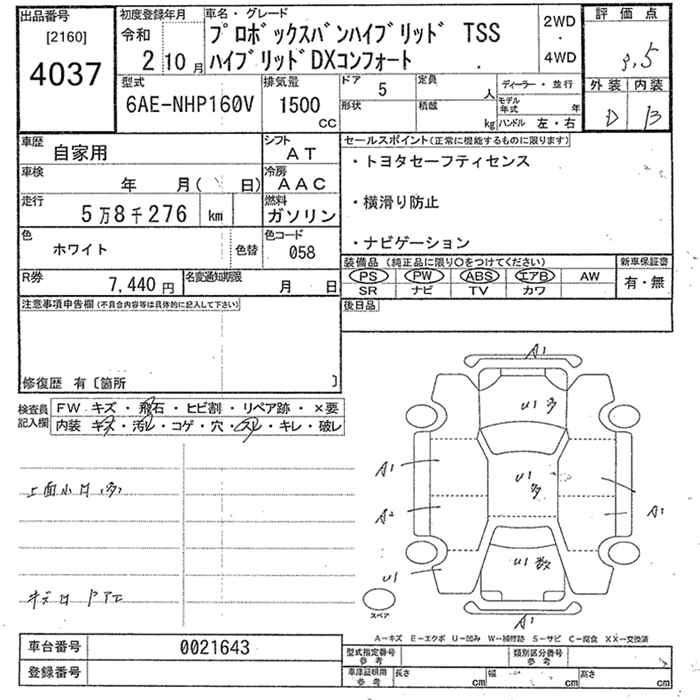 出品番号
[2160]
4037
初度登録年月
令和
2 10月
車名・グレード
プロボックスバンハイブリッド TSS
ハイブリッドDXコンフォート
2WD
・
4WD
評価点
3.5
外装 内装
D B
型式
6AE-NHP160V
排気量
1500
CC
ドア
5
定員
人
形状
積載
kg
ディーラー・並行
モデル年式
年
ハンドル 左・右
車歴
自家用
シフト
AT
車検
年 月( 日)
冷房
AAC
走行
5万8千276 km
燃料
ガソリン
色
ホワイト
色替
色コード
058
R券
7,440 円
名変通知期限
月 日
セールスポイント(正常に機能するものに限ります)
・トヨタセーフティセンス
・横滑り防止
・ナビゲーション
装備品 (純正品に限り○をつけてください)
新車保証書
PS PW ABS エアB AW
SR ナビ TV カワ
有・無
後日品
注意事項申告欄(不具合内容等は具体的に記入して下さい)
修復歴 有〔箇所 〕
検査員
記入欄
FW キズ・飛石・ヒビ割・リペア跡・×要
内装 キズ・汚レ・コゲ・穴・スレ・キレ・破レ
上面小凹(多)
キズ凹 ドアエ
A1
U1多
A1
U1
多
A2
A1
U1
U1数
A1
スペア
A－キズ E－エクボ U－凹み W－補修跡 S－サビ C－腐食 XX－交換済
車台番号
0021643
登録番号
型式指定番号
参考
類別区分番号
参考
車庫証明用
参考
長さ
cm
幅
cm
高さ
cm